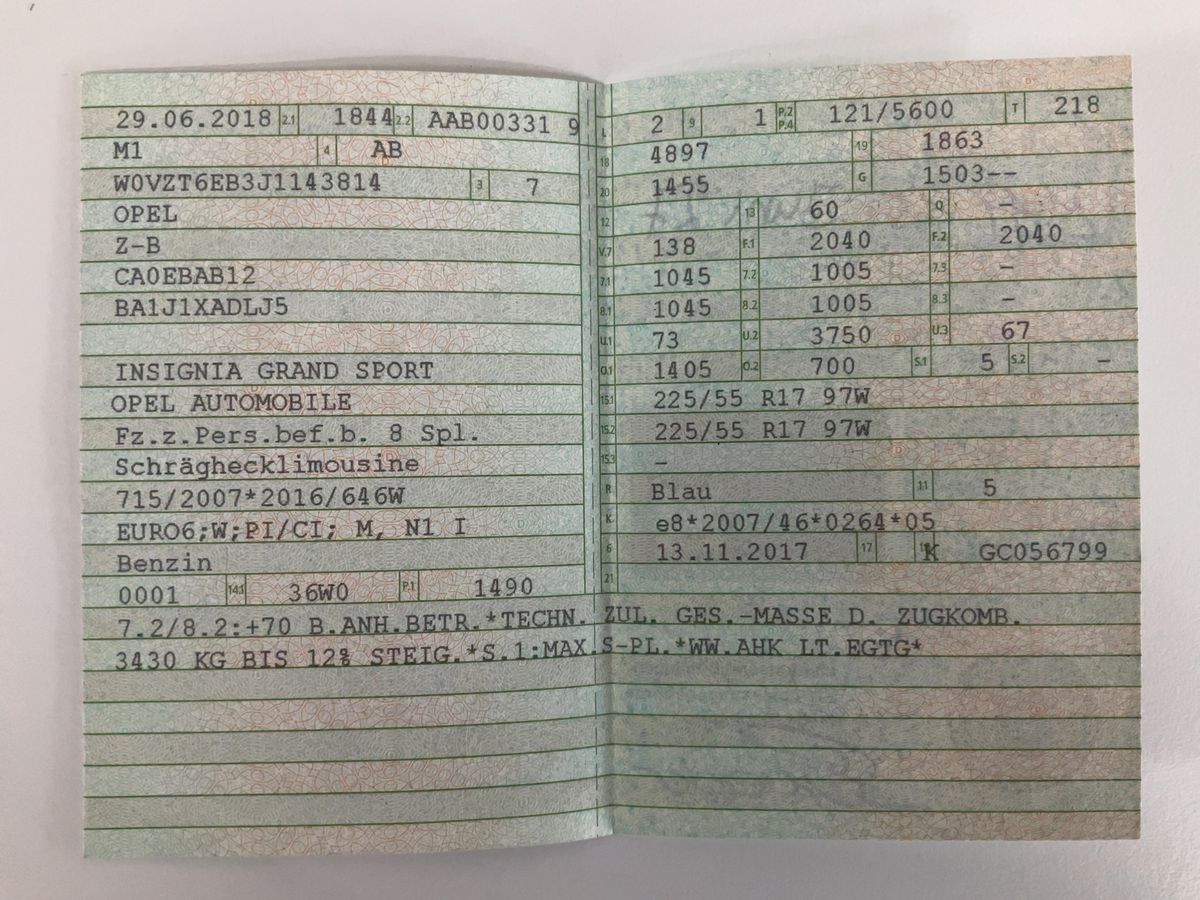 29.06.2018 2.1 1844 2.2 AAB00331 9
M1 4 AB
W0VZT6EB3J1143814 3 7
OPEL
Z-B
CA0EBAB12
BA1J1XADLJ5
INSIGNIA GRAND SPORT
OPEL AUTOMOBILE
Fz.z.Pers.bef.b. 8 Spl.
Schräghecklimousine
715/2007*2016/646W
EURO6;W;PI/CI; M, N1 I
Benzin
0001 14.1 36W0 P.1 1490
L 2 9 1 P.2 P.4 121/5600 T 218
18 4897 19 1863
20 1455 G 1503--
12 13 60 Q -
V.7 138 F.1 2040 F.2 2040
7.1 1045 7.2 1005 7.3 -
8.1 1045 8.2 1005 8.3 -
U.1 73 U.2 3750 U.3 67
O.1 1405 O.2 700 S.1 5 S.2 -
15.1 225/55 R17 97W
15.2 225/55 R17 97W
15.3 -
R Blau 11 5
K e8*2007/46*0264*05
6 13.11.2017 17 K GC056799
21
7.2/8.2:+70 B.ANH.BETR.*TECHN. ZUL. GES.-MASSE D. ZUGKOMB.
3430 KG BIS 12% STEIG.*S.1:MAX.S-PL.*WW.AHK LT.EGTG*